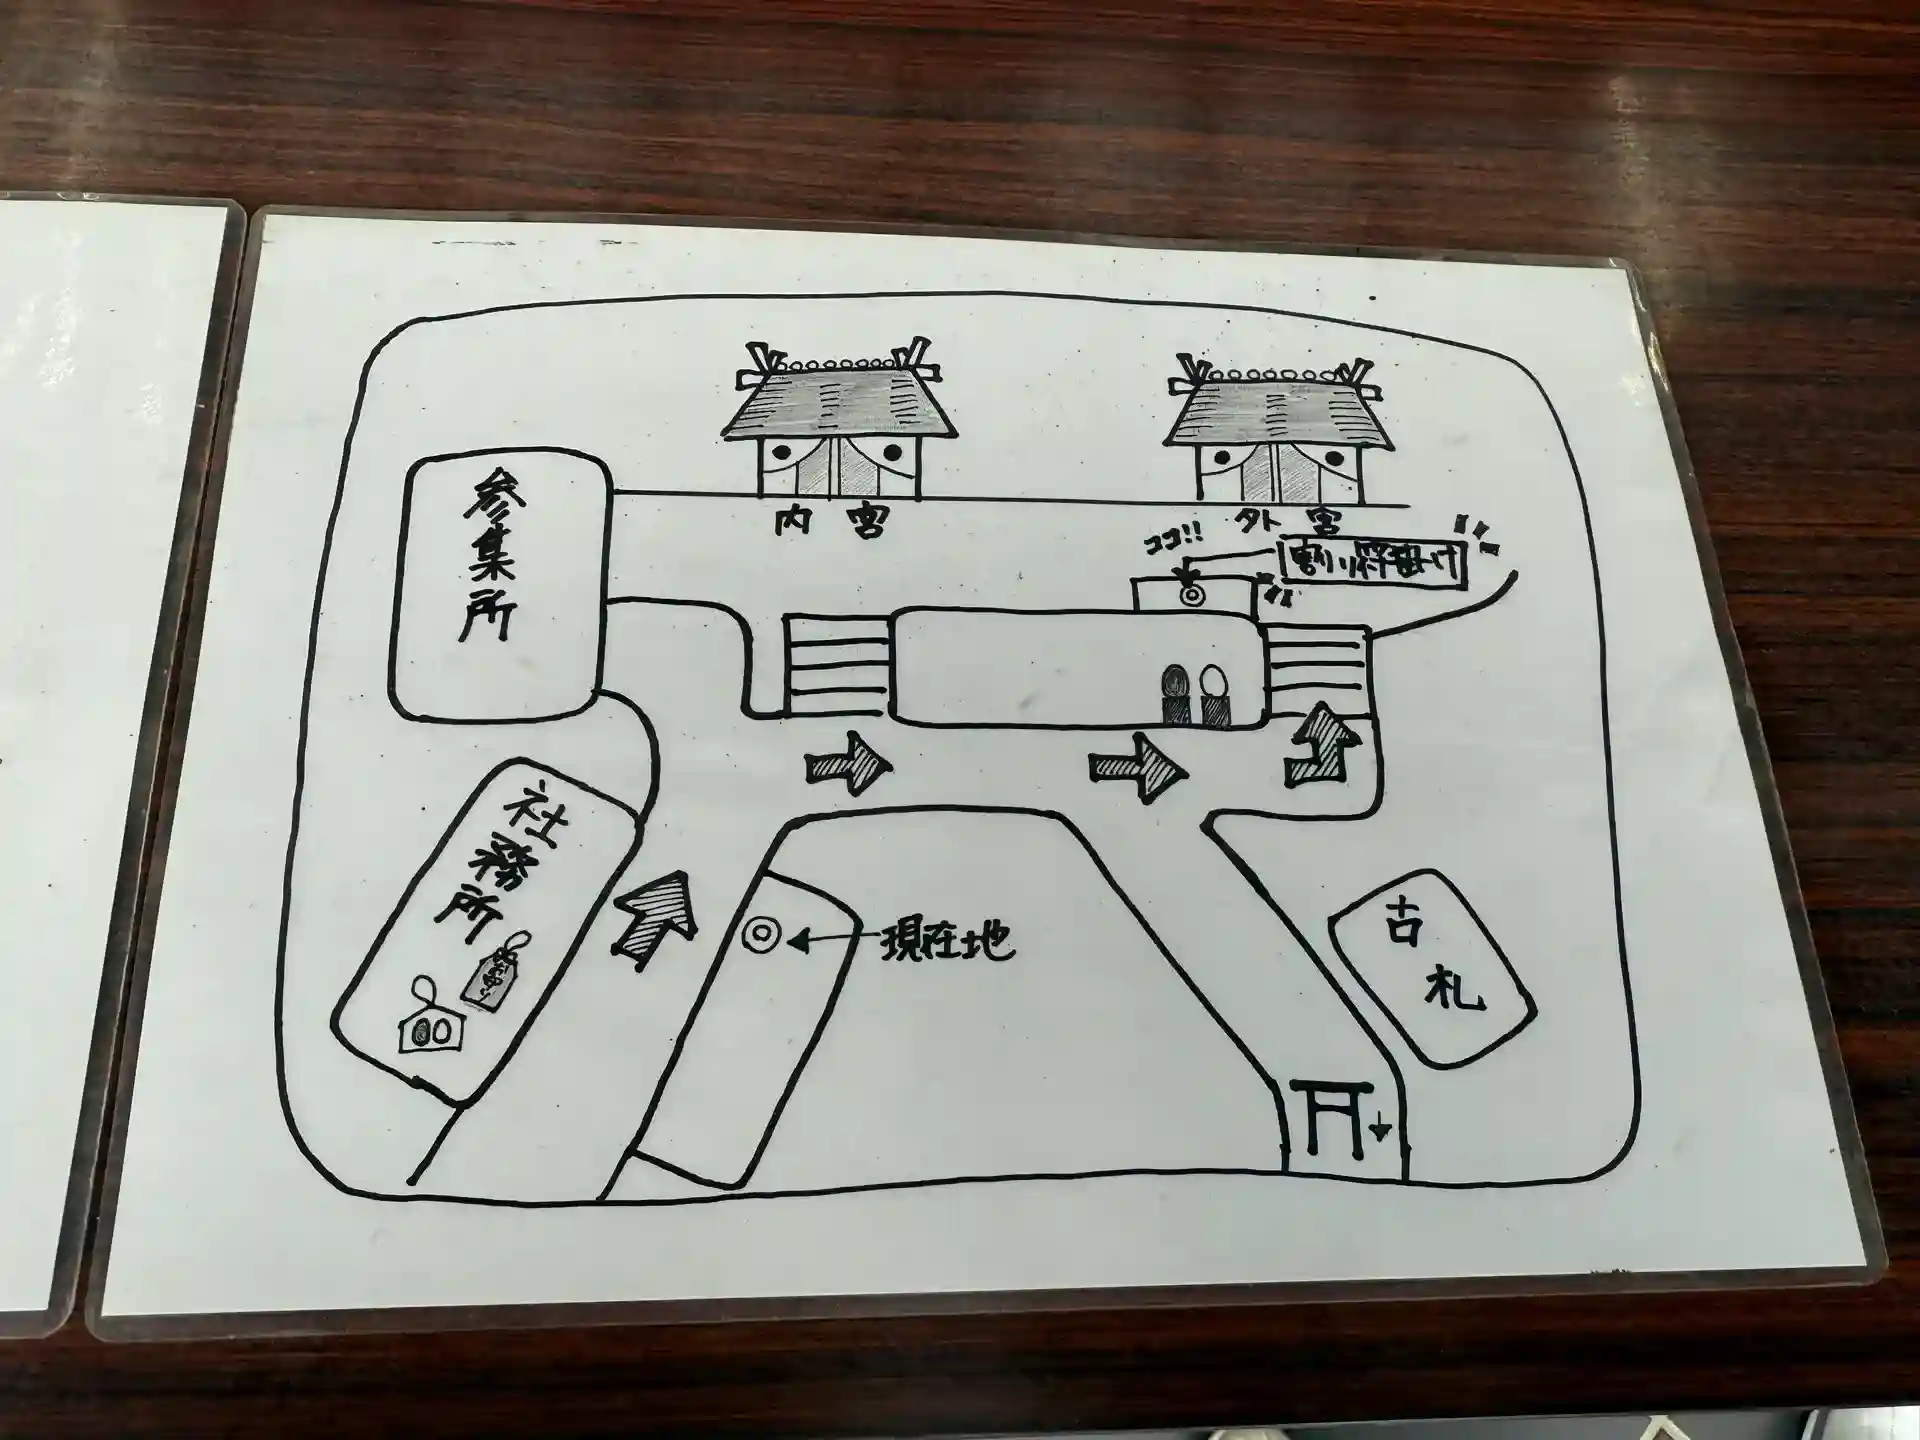 内宮
外宮
ココ!!
割り符掛け
参集所
社務所
現在地
古札